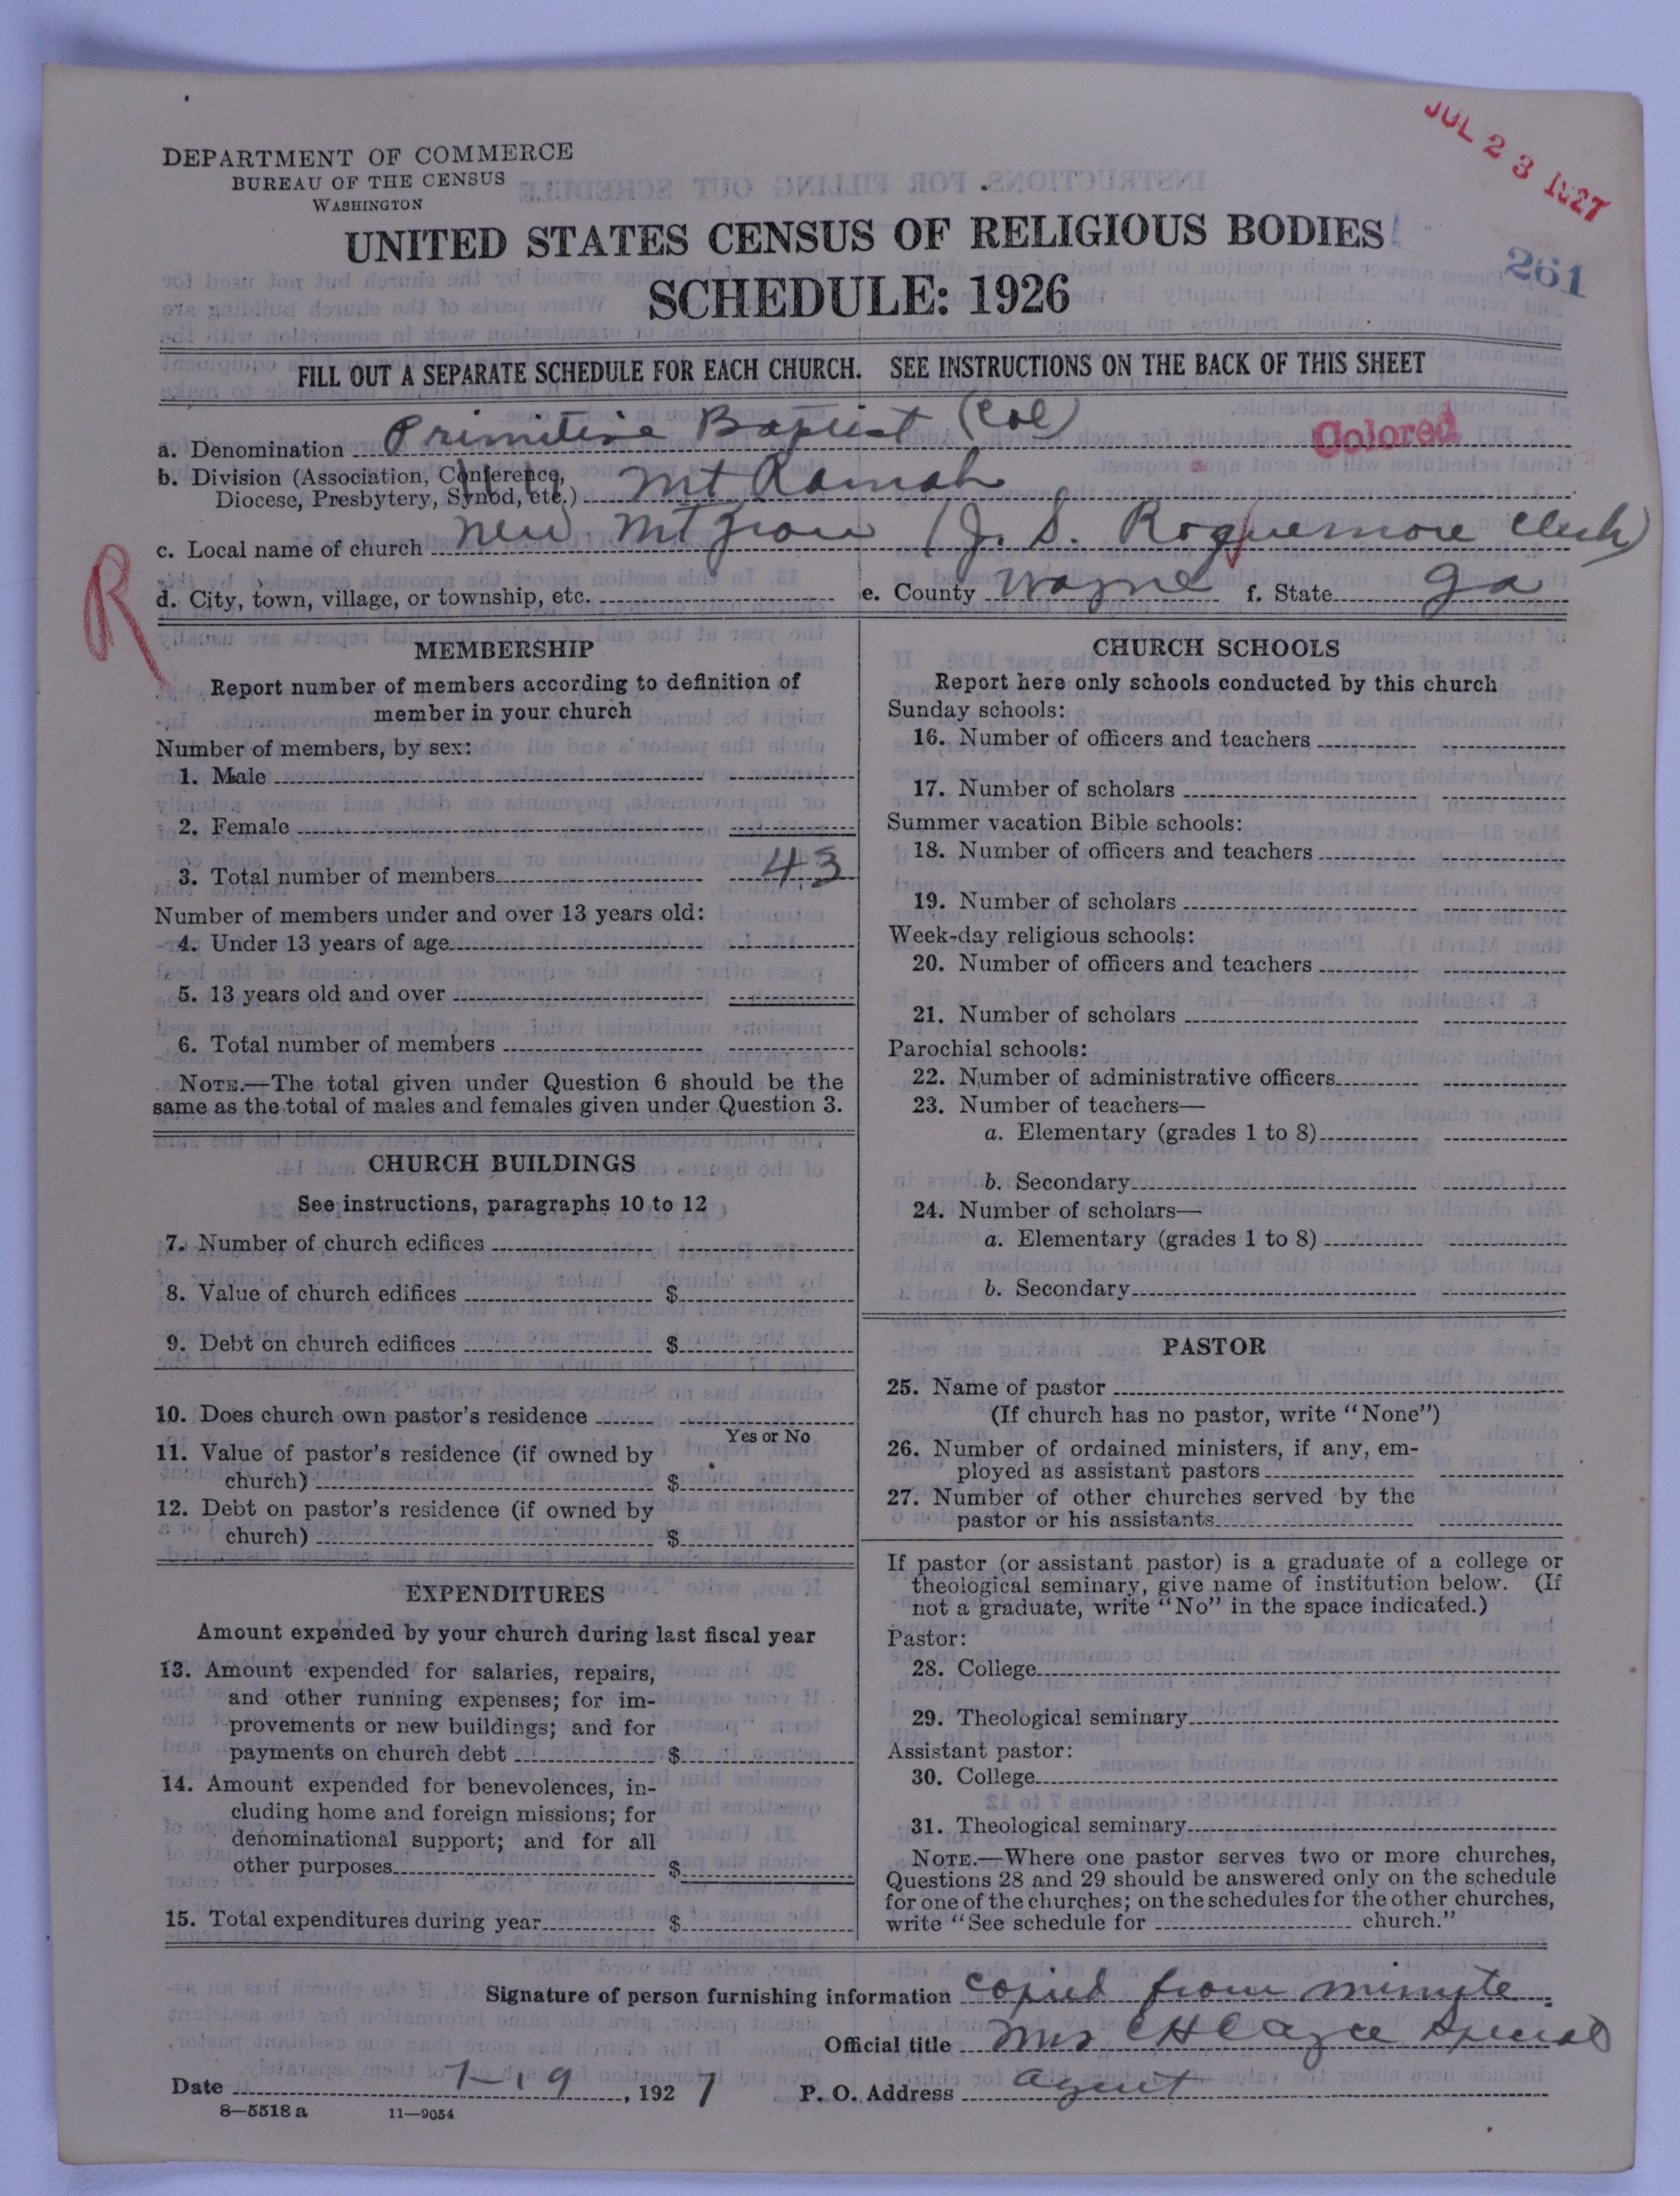 JUL 23 1927
DEPARTMENT OF COMMERCE
BUREAU OF THE CENSUS
WASHINGTON
UNITED STATES CENSUS OF RELIGIOUS BODIES
261
SCHEDULE: 1926
FILL OUT A SEPARATE SCHEDULE FOR EACH CHURCH. SEE INSTRUCTIONS ON THE BACK OF THIS SHEET
a. Denomination Primitive Baptist (Col) Colored
b. Division (Association, Conference,
Diocese, Presbytery, Synod, etc.) Mt Ramah
c. Local name of church New Mt Zion (J. S. Roquemore Clerk)
R
d. City, town, village, or township, etc. e. County Wayne f. State Ga
MEMBERSHIP
Report number of members according to definition of
member in your church
Number of members, by sex:
1. Male
2. Female
3. Total number of members 43
Number of members under and over 13 years old:
4. Under 13 years of age
5. 13 years old and over
6. Total number of members
NOTE.—The total given under Question 6 should be the
same as the total of males and females given under Question 3.
CHURCH BUILDINGS
See instructions, paragraphs 10 to 12
7. Number of church edifices
8. Value of church edifices $
9. Debt on church edifices $
10. Does church own pastor's residence
Yes or No
11. Value of pastor's residence (if owned by
church) $
12. Debt on pastor's residence (if owned by
church) $
EXPENDITURES
Amount expended by your church during last fiscal year
13. Amount expended for salaries, repairs,
and other running expenses; for im-
provements or new buildings; and for
payments on church debt $
14. Amount expended for benevolences, in-
cluding home and foreign missions; for
denominational support; and for all
other purposes $
15. Total expenditures during year $
CHURCH SCHOOLS
Report here only schools conducted by this church
Sunday schools:
16. Number of officers and teachers
17. Number of scholars
Summer vacation Bible schools:
18. Number of officers and teachers
19. Number of scholars
Week-day religious schools:
20. Number of officers and teachers
21. Number of scholars
Parochial schools:
22. Number of administrative officers
23. Number of teachers—
a. Elementary (grades 1 to 8)
b. Secondary
24. Number of scholars—
a. Elementary (grades 1 to 8)
b. Secondary
PASTOR
25. Name of pastor
(If church has no pastor, write "None")
26. Number of ordained ministers, if any, em-
ployed as assistant pastors
27. Number of other churches served by the
pastor or his assistants
If pastor (or assistant pastor) is a graduate of a college or
theological seminary, give name of institution below. (If
not a graduate, write "No" in the space indicated.)
Pastor:
28. College
29. Theological seminary
Assistant pastor:
30. College
31. Theological seminary
NOTE.—Where one pastor serves two or more churches,
Questions 28 and 29 should be answered only on the schedule
for one of the churches; on the schedules for the other churches,
write "See schedule for church."
Signature of person furnishing information copied from minute.
Official title Mrs C H Special
Date 7-19, 1927 P. O. Address agent
8—5518 a 11—9054